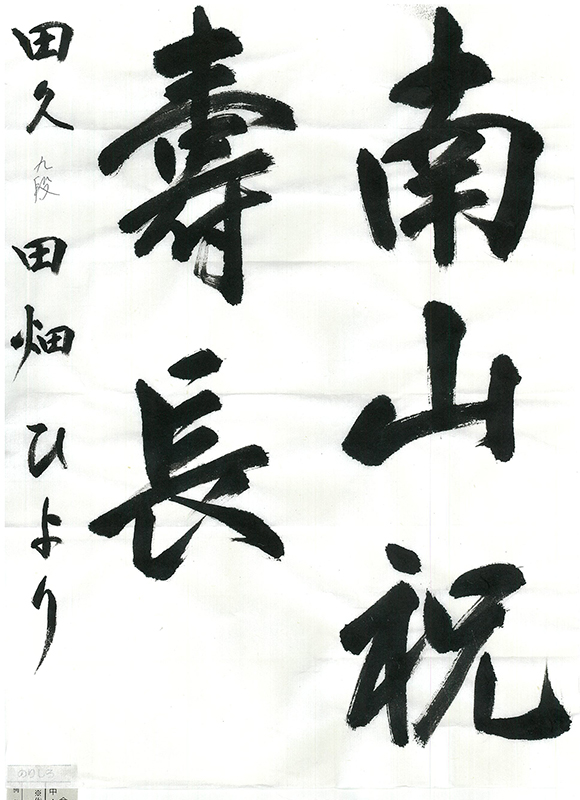 南山祝
壽長
田久 九段 田畑ひより
のりしろ